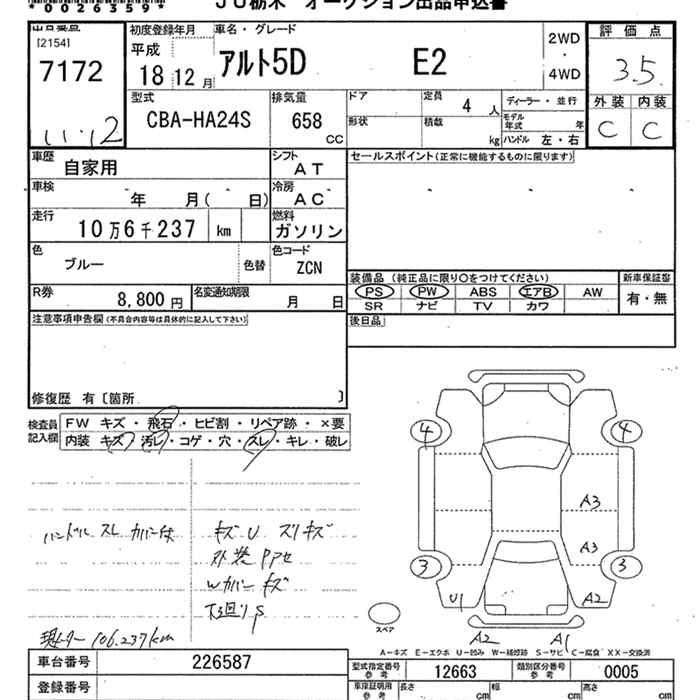 *0026359*
JU栃木 オークション出品申込書
[2154]
7172
11.12
初度登録年月
平成
18 12月
車名・グレード
アルト5D E2
2WD
・
4WD
評価点
3.5
外装 内装
C C
型式
CBA-HA24S
排気量
658
CC
ドア
形状
定員
4 人
積載
kg
ディーラー・並行
モデル年式 年
ハンドル 左・右
車歴
自家用
シフト
AT
セールスポイント(正常に機能するものに限ります)
車検
年 月( 日)
冷房
AC
走行
10万6千237 km
燃料
ガソリン
色
ブルー
色替
色コード
ZCN
R券
8,800円
名変通知期限
月 日
装備品 (純正品に限り○をつけてください)
PS PW ABS エアB AW
SR ナビ TV カワ
新車保証書
有・無
後日品
注意事項申告欄(不具合内容等は具体的に記入して下さい)
修復歴 有〔箇所 〕
検査員記入欄
FW キズ・飛石・ヒビ割・リペア跡・×要
内装 キズ・汚レ・コゲ・穴・スレ・キレ・破レ
ハンドル スレ カバー付
キズU スリキズ
外装 PPセ
Wカバー キズ
下廻りS
現メーター 106.237km
4 4
A3
A3
3 3
U1 A2
A2 A1
スペア
A-キズ E-エクボ U-凹み W-補修跡 S-サビ C-腐食 XX-交換済
車台番号 226587
登録番号
型式指定番号 参考 12663
類別区分番号 参考 0005
車庫証明用 参考
長さ cm
幅 cm
高さ cm